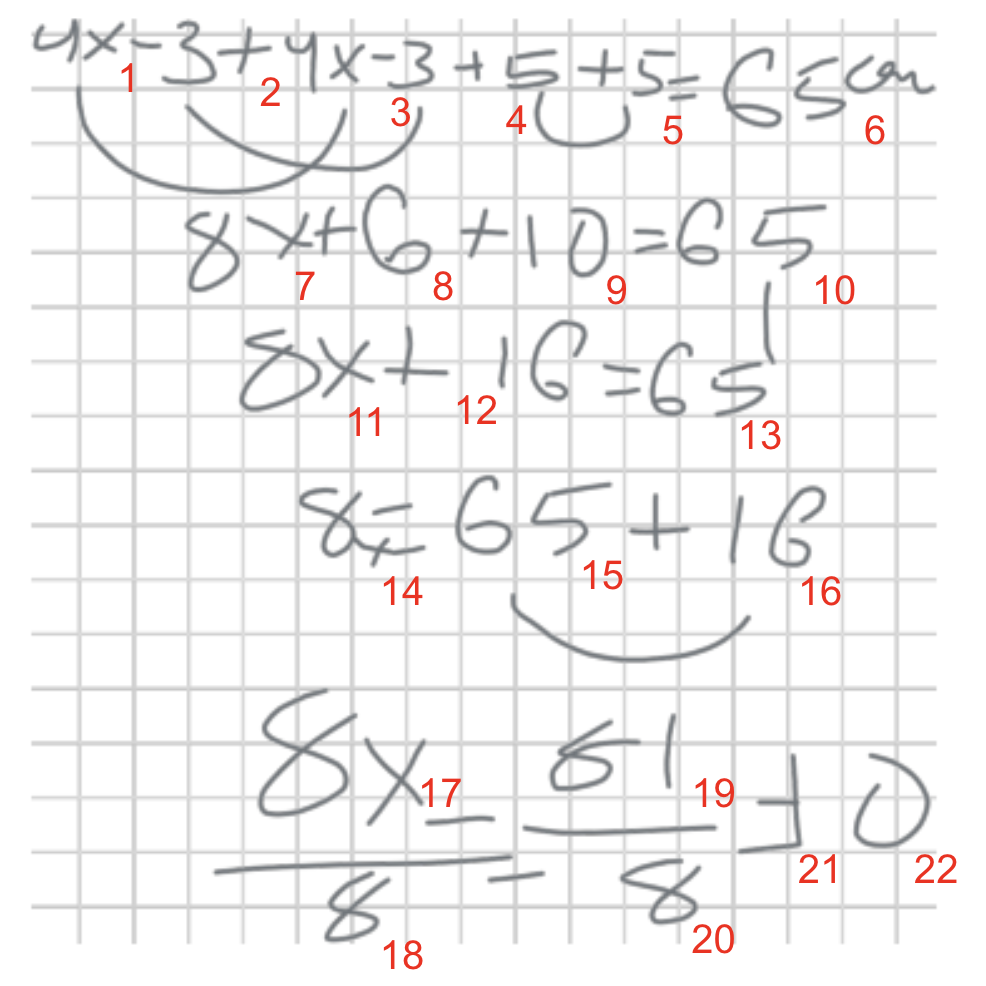 4x-3+4x-3+5+5=65cm
1 2 3 4 5 6
8x+6+10=65
7 8 9 10
8x+16=65
11 12 13
8x=65+16
14 15 16
8x = 81 = 10
17 19 21 22
8 = 8
18 20